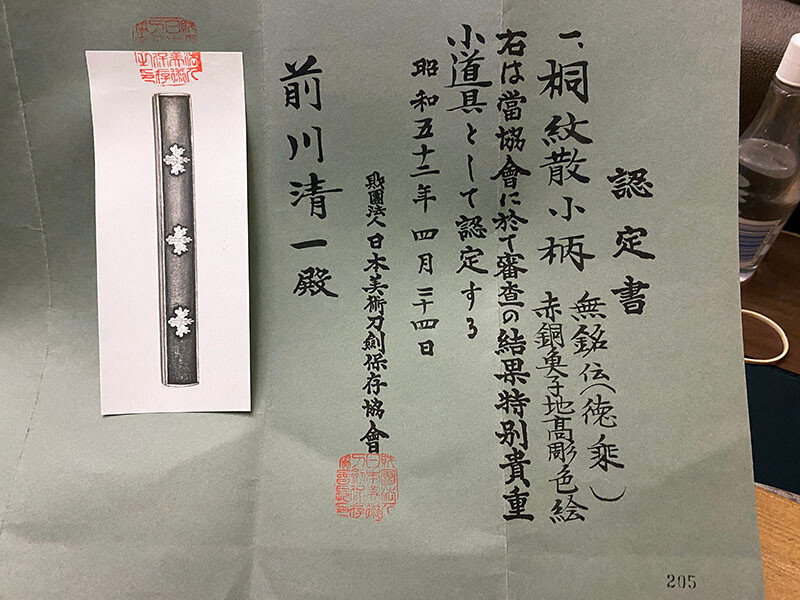 認定書
一、桐紋散小柄
無銘伝(徳乘)
赤銅魚子地高彫色絵
右は當協會に於て審査の結果特別貴重
小道具として認定する
昭和五十二年四月二十四日
財團法人日本美術刀劍保存協會
前川清一殿
205